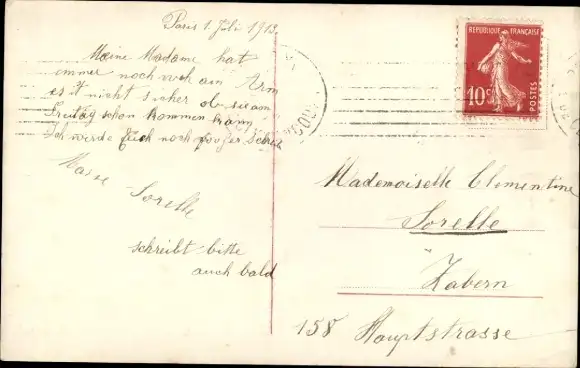 Paris 1 Juli 1913
Meine Madame hat
immer noch weh am Arm
es ist nicht sicher ob sie am
Freitag schon kommen kann
Ich werde Euch noch
Sorelle
schreibt bitte
auch bald
REPUBLIQUE FRANÇAISE
10c
POSTES
Mademoiselle Clementine
Sorelle
Zabern
158 Hauptstrasse